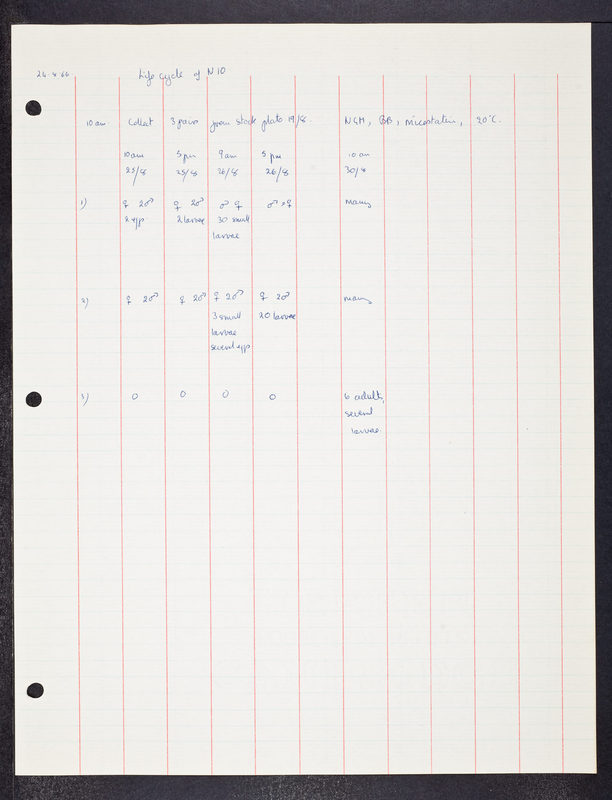 24.8.66 Life cycle of N10
10 am. Collect 3 pairs from stock plate 19/8. NGM, BB, mycostatin, 20°C.
10am 5pm 9am 5pm 10 am
25/8 25/8 26/8 26/8 30/8
1) ♀ 2♂ ♀ 2♂ ♂ ♀ ♂ ♀ many
2 eggs 2 larvae 30 small
larvae
2) ♀ 2♂ ♀ 2♂ ♀ 2♂ ♀ 2♂ many
3 small 20 larvae
larvae
several eggs
3) 0 0 0 0 6 adults,
several
larvae.